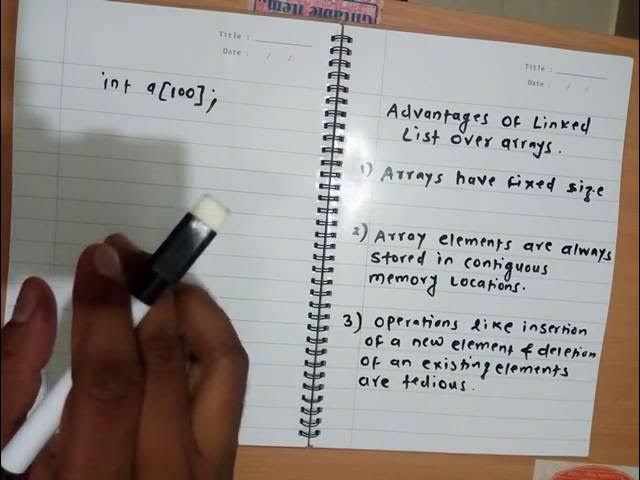 Title :
Date : / /
int a[100];
Title :
Date : / /
Advantages of Linked
List over arrays.
1) Arrays have fixed size
2) Array elements are always
stored in contiguous
memory locations.
3) operations like insertion
of a new element & deletion
of an existing elements
are tedious.